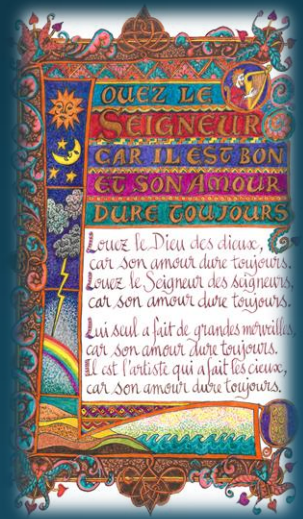 LOUEZ LE
SEIGNEUR
CAR IL EST BON
ET SON AMOUR
DURE TOUJOURS
Louez le Dieu des dieux,
car son amour dure toujours.
Louez le Seigneur des seigneurs,
car son amour dure toujours.
Lui seul a fait de grandes merveilles
car son amour dure toujours.
Il est l'artiste qui a fait les cieux,
car son amour dure toujours.